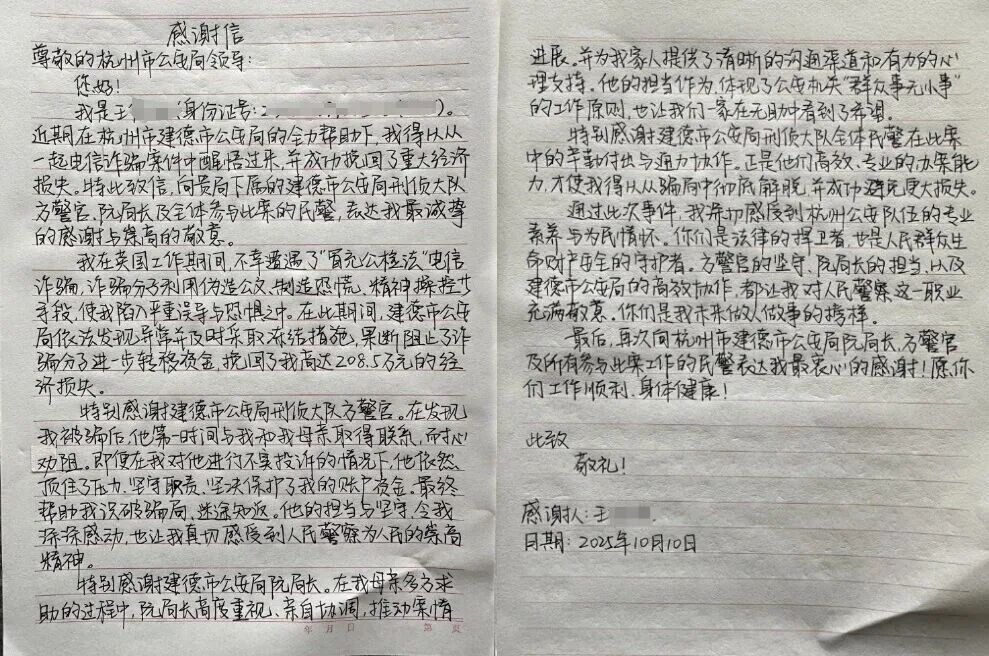 感谢信
尊敬的杭州市公安局领导:
您好!
我是王 (身份证号:2 )。
近期在杭州市建德市公安局的全力帮助下,我得以从
一起电信诈骗案件中醒悟过来,并成功挽回了重大经济
损失。特此致信,向贵局下属的建德市公安局刑侦大队
方警官、阮局长及全体参与此案的民警,表达我最诚挚
的感谢与崇高的敬意。
我在英国工作期间,不幸遭遇了“冒充公检法”电信
诈骗,诈骗分子利用伪造公文、制造恐慌、精神操控等
手段,使我陷入严重误导与恐惧之中。在此期间,建德市公安
局依法发现异常并及时采取冻结措施,果断阻止了诈
骗分子进一步转移资金,挽回了我高达208.5万元的经
济损失。
特别感谢建德市公安局刑侦大队方警官。在发现
我被骗后,他第一时间与我和我母亲取得联系,耐心
劝阻。即便在我对他进行不实投诉的情况下,他依然
顶住了压力、坚守职责、坚决保护了我的账户资金。最终
帮助我识破骗局、迷途知返。他的担当与坚守,令我
深深感动,也让我真切感受到人民警察为人民的崇高
精神。
特别感谢建德市公安局阮局长。在我母亲多方求
助的过程中,阮局长高度重视、亲自协调,推动案情
年 月 日 第 页
进展。并为我家人提供了清晰的沟通渠道和有力的心
理支持。他的担当作为,体现了公安机关“群众事无小事”
的工作原则,也让我们一家在无助中看到了希望。
特别感谢建德市公安局刑侦大队全体民警在此案
中的辛勤付出与通力协作。正是他们高效、专业的办案能
力,才使我得以从骗局中彻底解脱,并成功避免更大损失。
通过此次事件,我深切感受到杭州公安队伍的专业
素养与为民情怀。你们是法律的捍卫者,也是人民群众生
命财产安全的守护者。方警官的坚守、阮局长的担当,以及
建德市公安局的高效协作,都让我对人民警察这一职业
充满敬意。你们是我未来做人做事的榜样。
最后,再次向杭州市建德市公安局阮局长、方警官
及所有参与此案工作的民警表达我最衷心的感谢!愿你
们工作顺利,身体健康!
此致
敬礼!
感谢人:王
日期:2025年10月10日